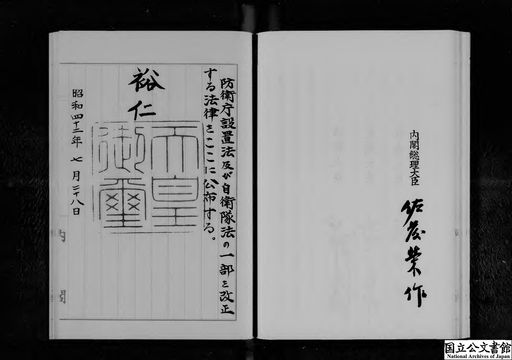 内閣総理大臣
佐藤榮作
防衛庁設置法及び自衛隊法の一部を改正
する法律をここに公布する。
裕仁
天皇
御璽
昭和四十二年七月二十八日
国立公文書館
National Archives of Japan